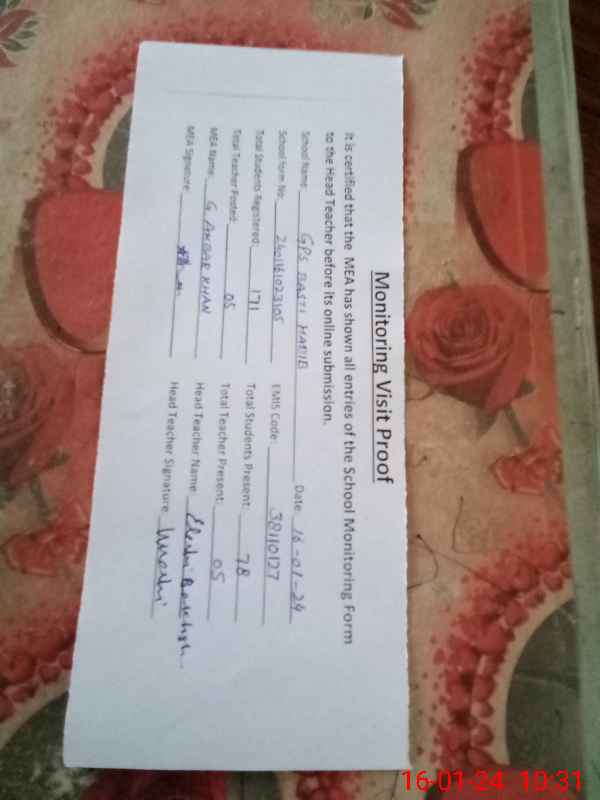 Monitoring Visit Proof
It is certified that the MEA has shown all entries of the School Monitoring Form
to the Head Teacher before its online submission.
School Name: GPS BASTI HABIB Date 16-01-24
School form No: 2401161023105 EMIS Code: 38110127
Total Students Registered: 171 Total Students Present: 78
Total Teacher Posted: 05 Total Teacher Present: 05
MEA Name: G. AKBAR KHAN Head Teacher Name: Bakhsh
MEA Signature: Head Teacher Signature
16-01-24 10:31